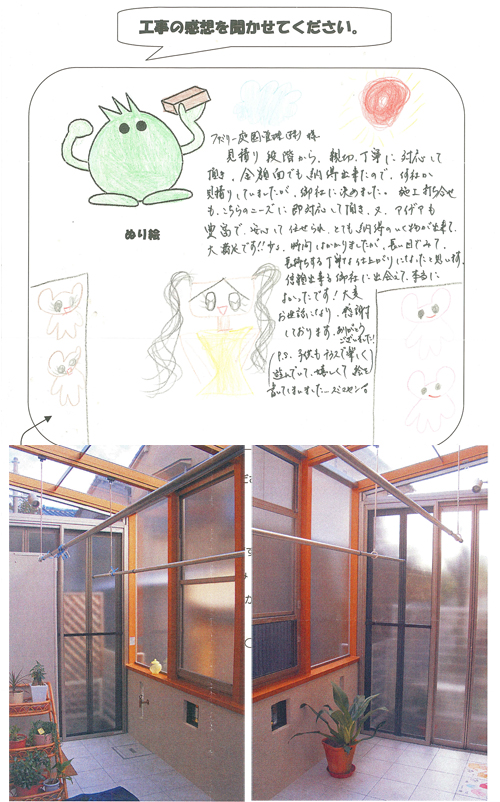 工事の感想を聞かせてください。
ファミリー庭園管理(株)様
見積り段階から、親切、丁寧に対応して
頂き、金額面でも納得出来たので、何社か
見積りしていましたが、御社に決めました。施工打ち合せ
も、こちらのニーズに即対応して頂き、又、アイデアも
豊富で、安心して任せられ、とても納得のいく物が出来て、
大満足です!!
時間はかかりましたが、長い目でみて、
長持ちする丁寧な仕上がりになったと思います。
信頼出来る御社に出会えて、本当に
よかったです!大変
お世話になり、感謝
しております。ありがとう
ございました!
P.S. 子供もテラスで楽しく
遊んでいて、嬉しくて絵を
書いてしまいました…スミマセン
ぬり絵